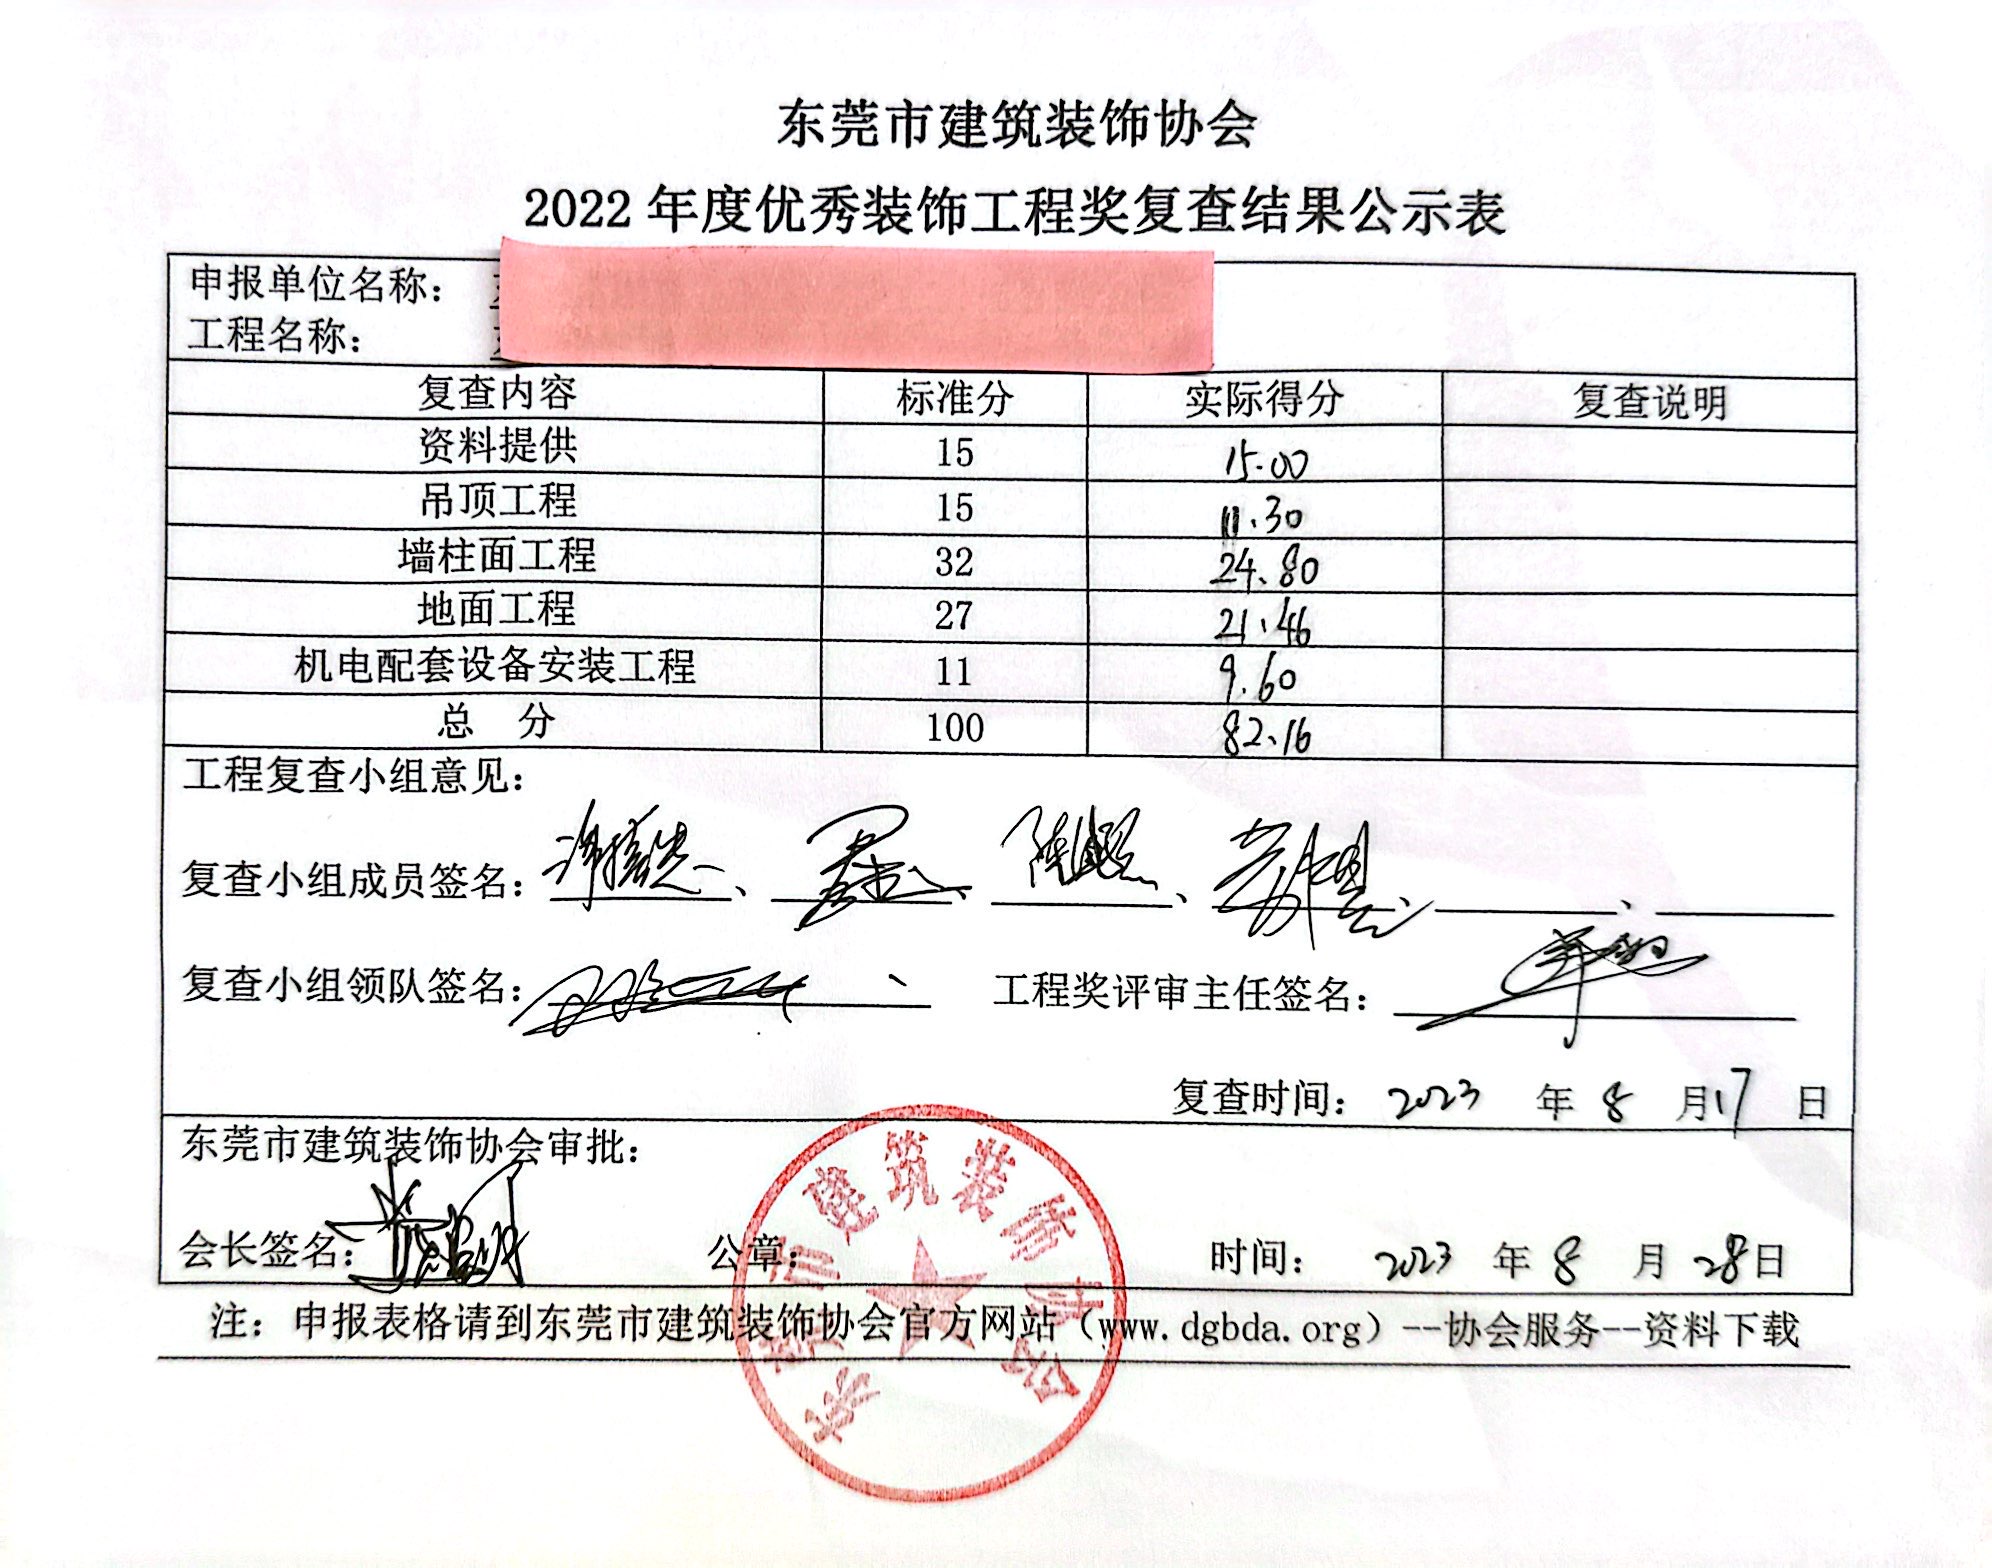 东莞市建筑装饰协会
2022 年度优秀装饰工程奖复查结果公示表
申报单位名称：
工程名称：
复查内容 标准分 实际得分 复查说明
资料提供 15 15.00
吊顶工程 15 11.30
墙柱面工程 32 24.80
地面工程 27 21.46
机电配套设备安装工程 11 9.60
总 分 100 82.16
工程复查小组意见：
复查小组成员签名：
复查小组领队签名： 工程奖评审主任签名：
复查时间： 2023 年 8 月 17 日
东莞市建筑装饰协会审批：
会长签名： 公章： 时间： 2023 年 8 月 28 日
东莞市建筑装饰协会
注：申报表格请到东莞市建筑装饰协会官方网站（www.dgbda.org）--协会服务--资料下载